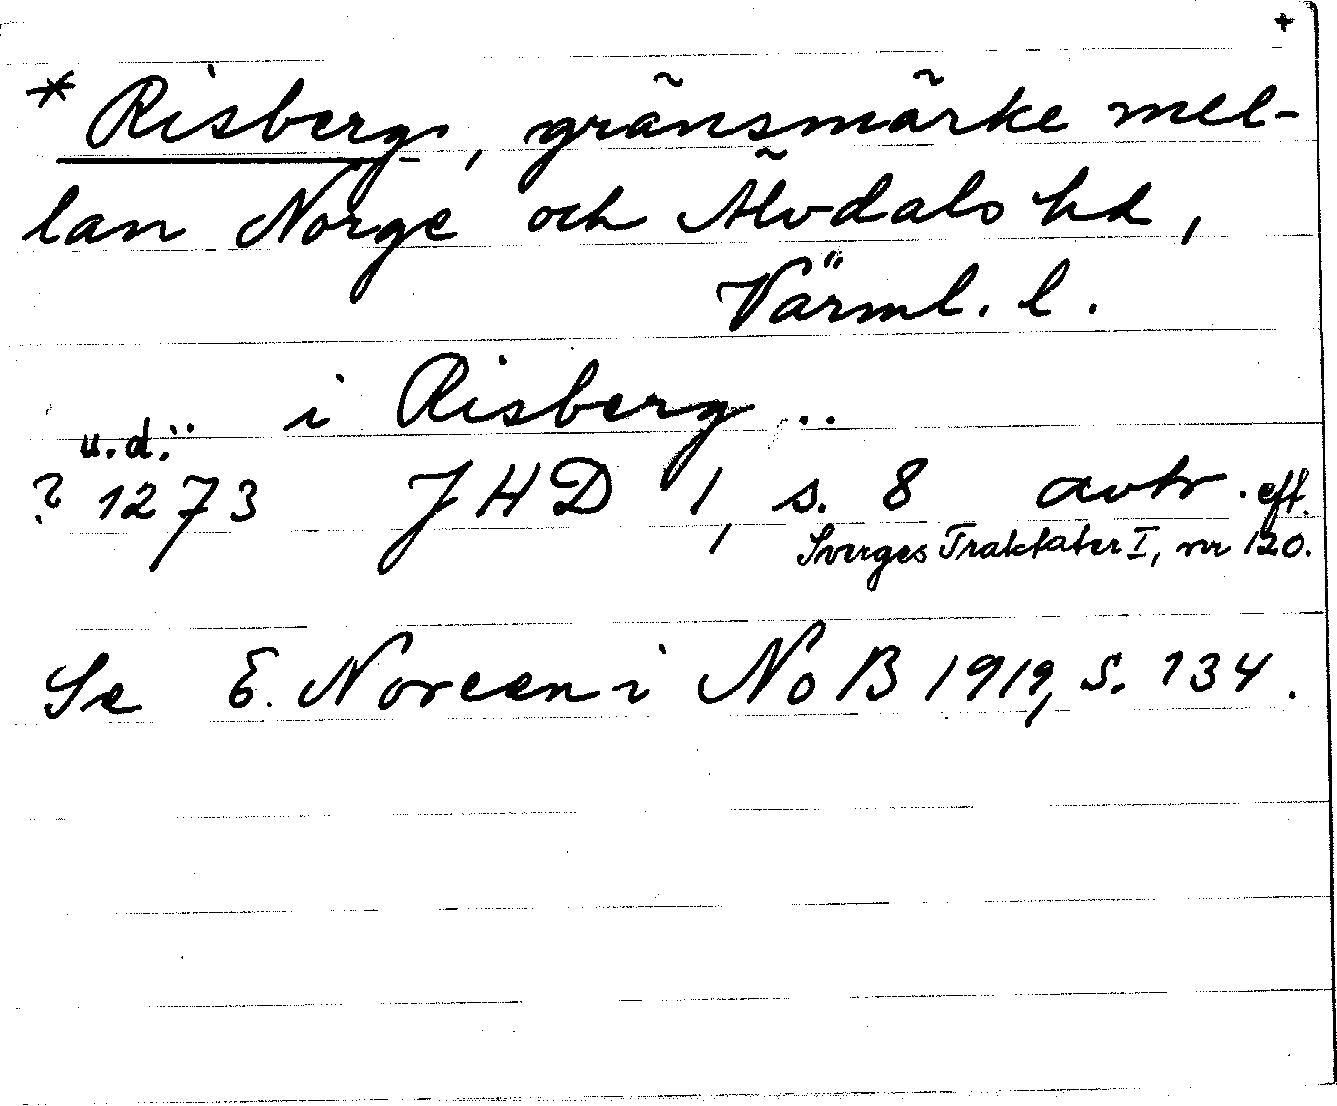 +
* Risberg, gränsmärke mel-
lan Norge och Älvdals hd,
Värml. l.
i Risberg ..
u.d.
? 1273 JHD 1, s. 8 avtr. eft.
Sverges Traktater I, nr 120.
Se E. Noreen i NoB 1919, s. 134.